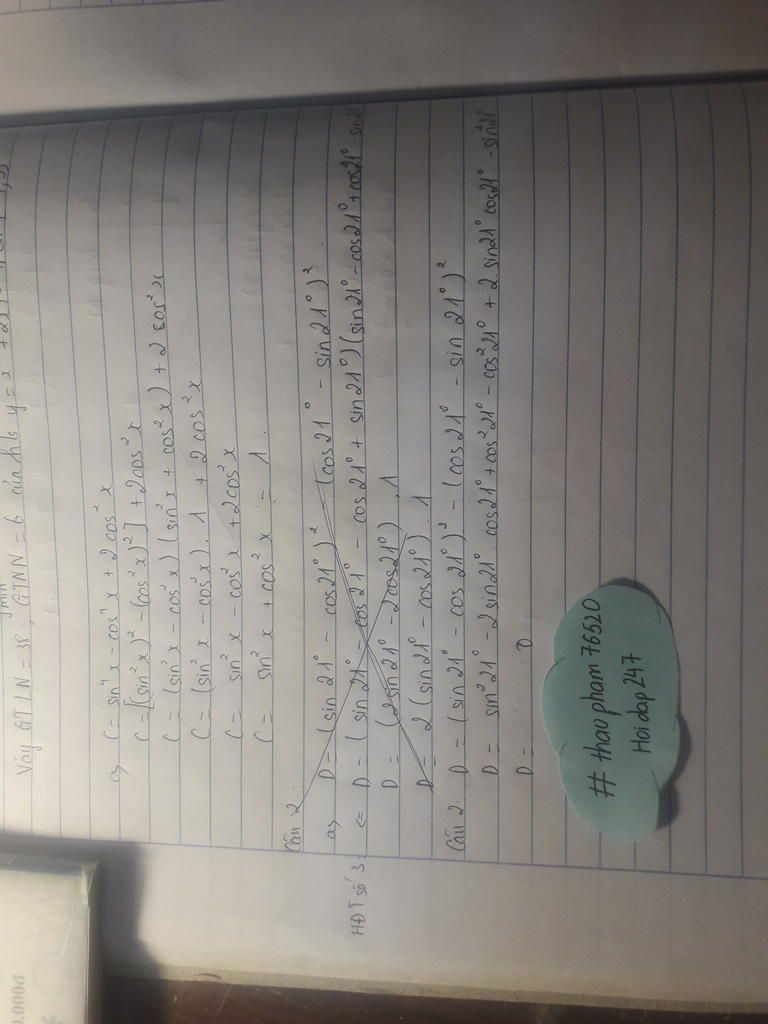 Vậy GTLN = 38; GTNN = 6 của h/s y = x
c) C = sin⁴x - cos⁴x + 2cos²x
C = [(sin²x)² - (cos²x)²] + 2cos²x
C = (sin²x - cos²x)(sin²x + cos²x) + 2cos²x
C = (sin²x - cos²x).1 + 2cos²x.
C = sin²x - cos²x + 2cos²x
C = sin²x + cos²x = 1.
Câu 2.
a) D = (sin21° - cos21°)² - (cos21° - sin21°)².
HĐT số 3: <= D = (sin21° - cos21° - cos21° + sin21°)(sin21° - cos21° + cos21° - sin21°
D = (2sin21° - 2cos21°).1
D = 2(sin21° - cos21°).1
Câu 2. D = (sin21° - cos21°)² - (cos21° - sin21°)²
D = sin²21° - 2sin21°.cos21° + cos²21° - cos²21° + 2.sin21°.cos21° - sin²21°
D = 0
# thaopham76520
Hoidap247
0.000đ